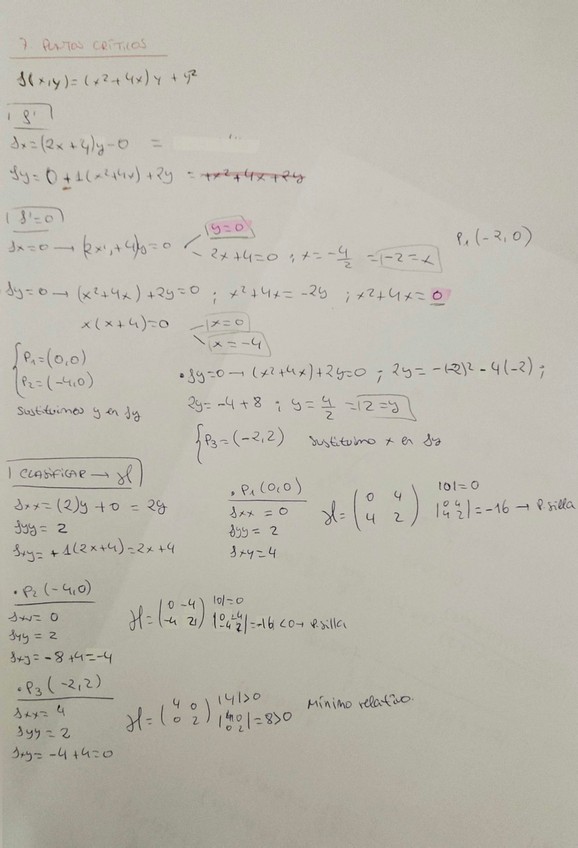 7 PUNTOS CRÍTICOS
f(x,y) = (x²+4x)y + y²
| f'
fx = (2x+4)y-0 =
fy = 0 + 1(x²+4x) + 2y = +x²+4x+2y
| f'=0
fx=0 → (2x+4)y=0 y=0
2x+4=0 ; x=-4/2 = -2=x P₁(-2,0)
fy=0 → (x²+4x)+2y=0 ; x²+4x=-2y ; x²+4x=0
x(x+4)=0 x=0
x=-4
{P₁=(0,0)
P₂=(-4,0)
Sustituimos y en fy
• fy=0 → (x²+4x)+2y=0 ; 2y=-(-2)²-4(-2) ;
2y=-4+8 ; y=4/2 = 2=y
{P₃=(-2,2) Sustituimo x en fy
| CLASIFICAR → H
fxx=(2)y+0=2y
fyy=2
fxy=+1(2x+4)=2x+4
• P₁(0,0)
fxx=0
fyy=2
fxy=4
H=(0 4
4 2) |0|=0
|0 4
4 2|=-16 → P. silla
• P₂(-4,0)
fxx=0
fyy=2
fxy=-8+4=-4
H=(0 -4
-4 2) |0|=0
|0 -4
-4 2|=-16<0 → P. silla
• P₃(-2,2)
fxx=4
fyy=2
fxy=-4+4=0
H=(4 0
0 2) |4|>0
|4 0
0 2|=8>0
Mínimo relativo.